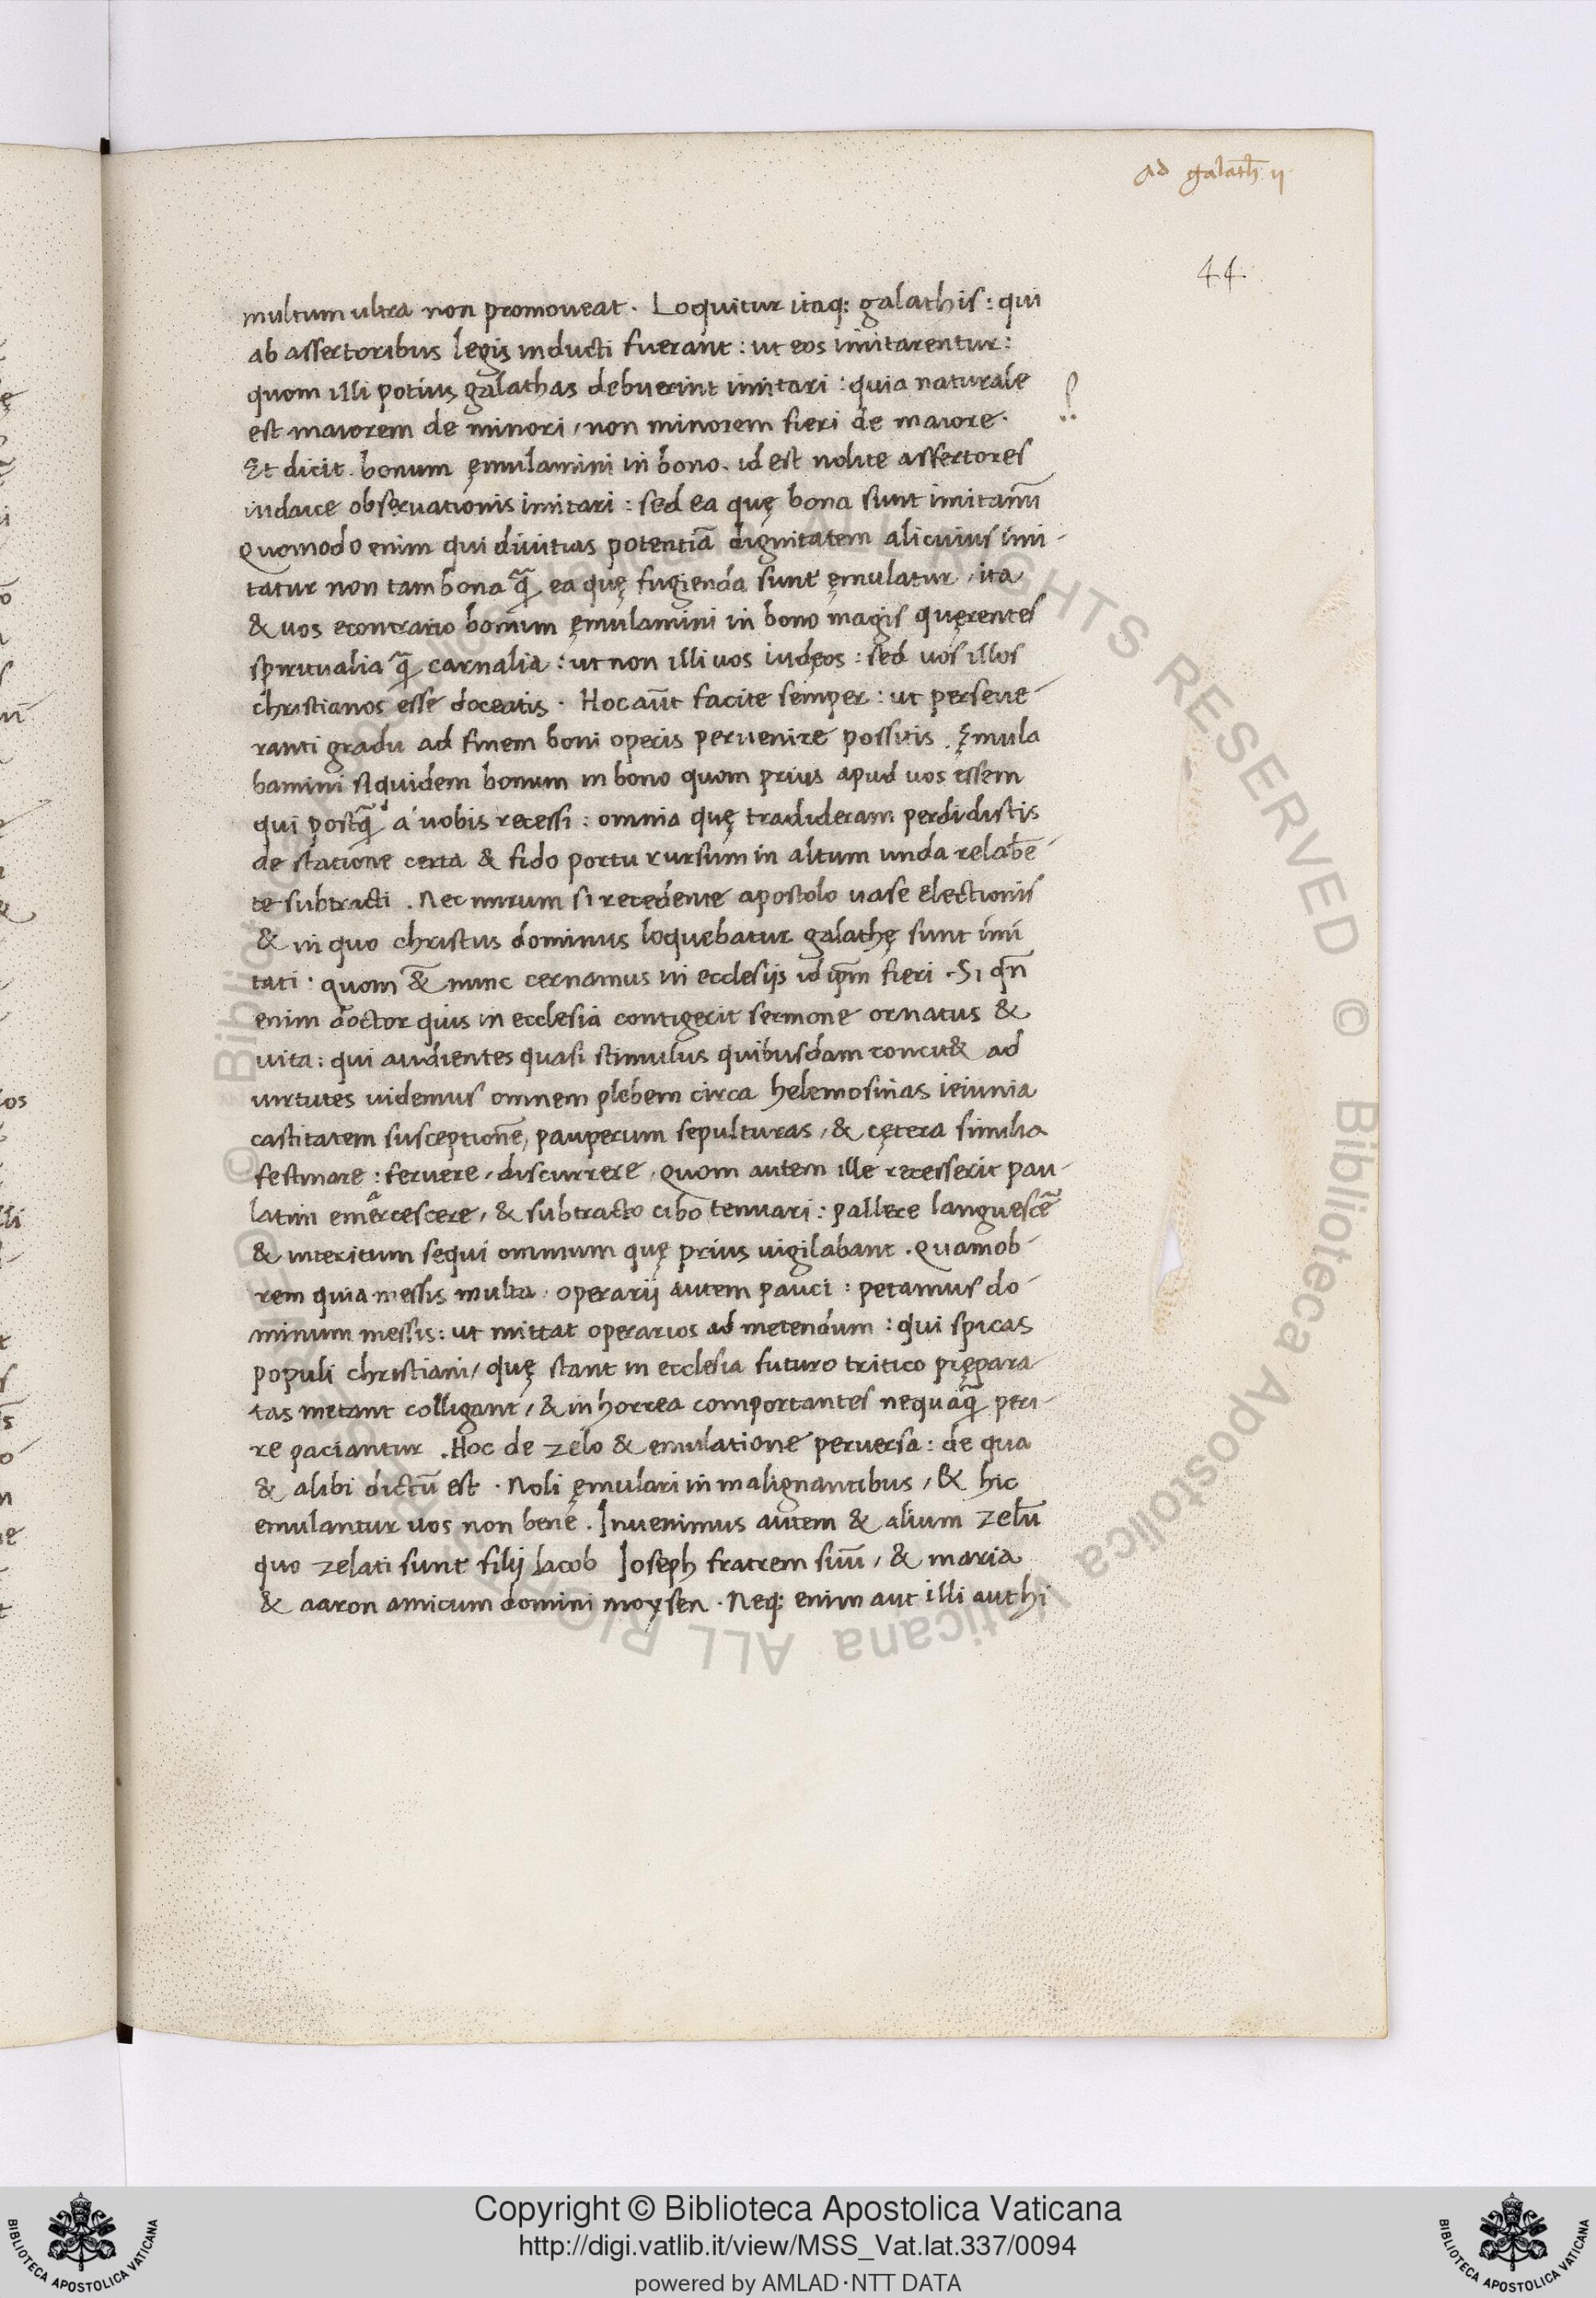 ad galath̄ ii
44
multum ultra non promoueat . Loquitur itaq; galathis : qui
ab assertoribus legis inducti fuerant : ut eos imitarentur :
quom illi potius galathas debuerint imitari : quia naturale
est maiorem de minori / non minorem fieri de maiore .
Et dicit . bonum ęmulamini in bono . id est nolite assertores
iudaice obseruationis imitari : sed ea quę bona sunt imitamī
Quomodo enim qui diuitias potentiā dignitatem alicuius imi-
tatur non tam bona q̄ ea quę fugienda sunt ęmulatur / ita
& uos econtrario bonum ęmulamini in bono magis quęrentes
spiritualia q̄ carnalia : ut non illi uos iudęos : sed uos illos
christianos esse doceatis . Hoc aūt facite semper : ut perseue-
ranti gradu ad finem boni operis peruenire possitis . Ęmula
bamini siquidem bonum in bono quom prius apud uos essem
qui postq̄ á uobis recessi : omnia quę tradideram perdidistis
de statione certa & fido portu rursum in altum unda relabē-
te subtracti . Nec mirum si recedente apostolo uase electionis
& in quo christus dominus loquebatur galathę sunt imi
tati : quom & nunc cernamus in ecclesijs id ip̄m fieri . Si qn̄
enim doctor quis in ecclesia contigerit sermone ornatus &
uita : qui audientes quasi stimulus quibusdam concit& ad
uirtutes uidemus omnem plebem circa helemosinas ieiunia
castitatem susceptionē, pauperum sepulturas / & cętera similia
festinare : feruere / discurrere . Quom autem ille recesserit pau-
latim emarcescere / & subtracto cibo tenuari : pallere languescē
& interitum sequi omnium quę prius uigilabant . Quamob-
rem quia messis multa . operarij autem pauci : petamus do-
minum messis : ut mittat operarios ad metendum : qui spicas
populi christiani / quę stant in ecclesia futuro tritico prępara-
tas metant colligant / & in horrea comportantes nequaq̄ peri-
re paciantur . Hoc de zelo & emulatione peruersa : de qua
& alibi dictū est . Noli ęmulari in malignantibus / & hic
emulantur uos non bene . Inuenimus autem & alium zelū
quo zelati sunt filij Iacob Ioseph fratrem suū / & maria
& aaron amicum domini moysen . Neq; enim aut illi aut hi
Copyright © Biblioteca Apostolica Vaticana
http://digi.vatlib.it/view/MSS_Vat.lat.337/0094
powered by AMLAD·NTT DATA